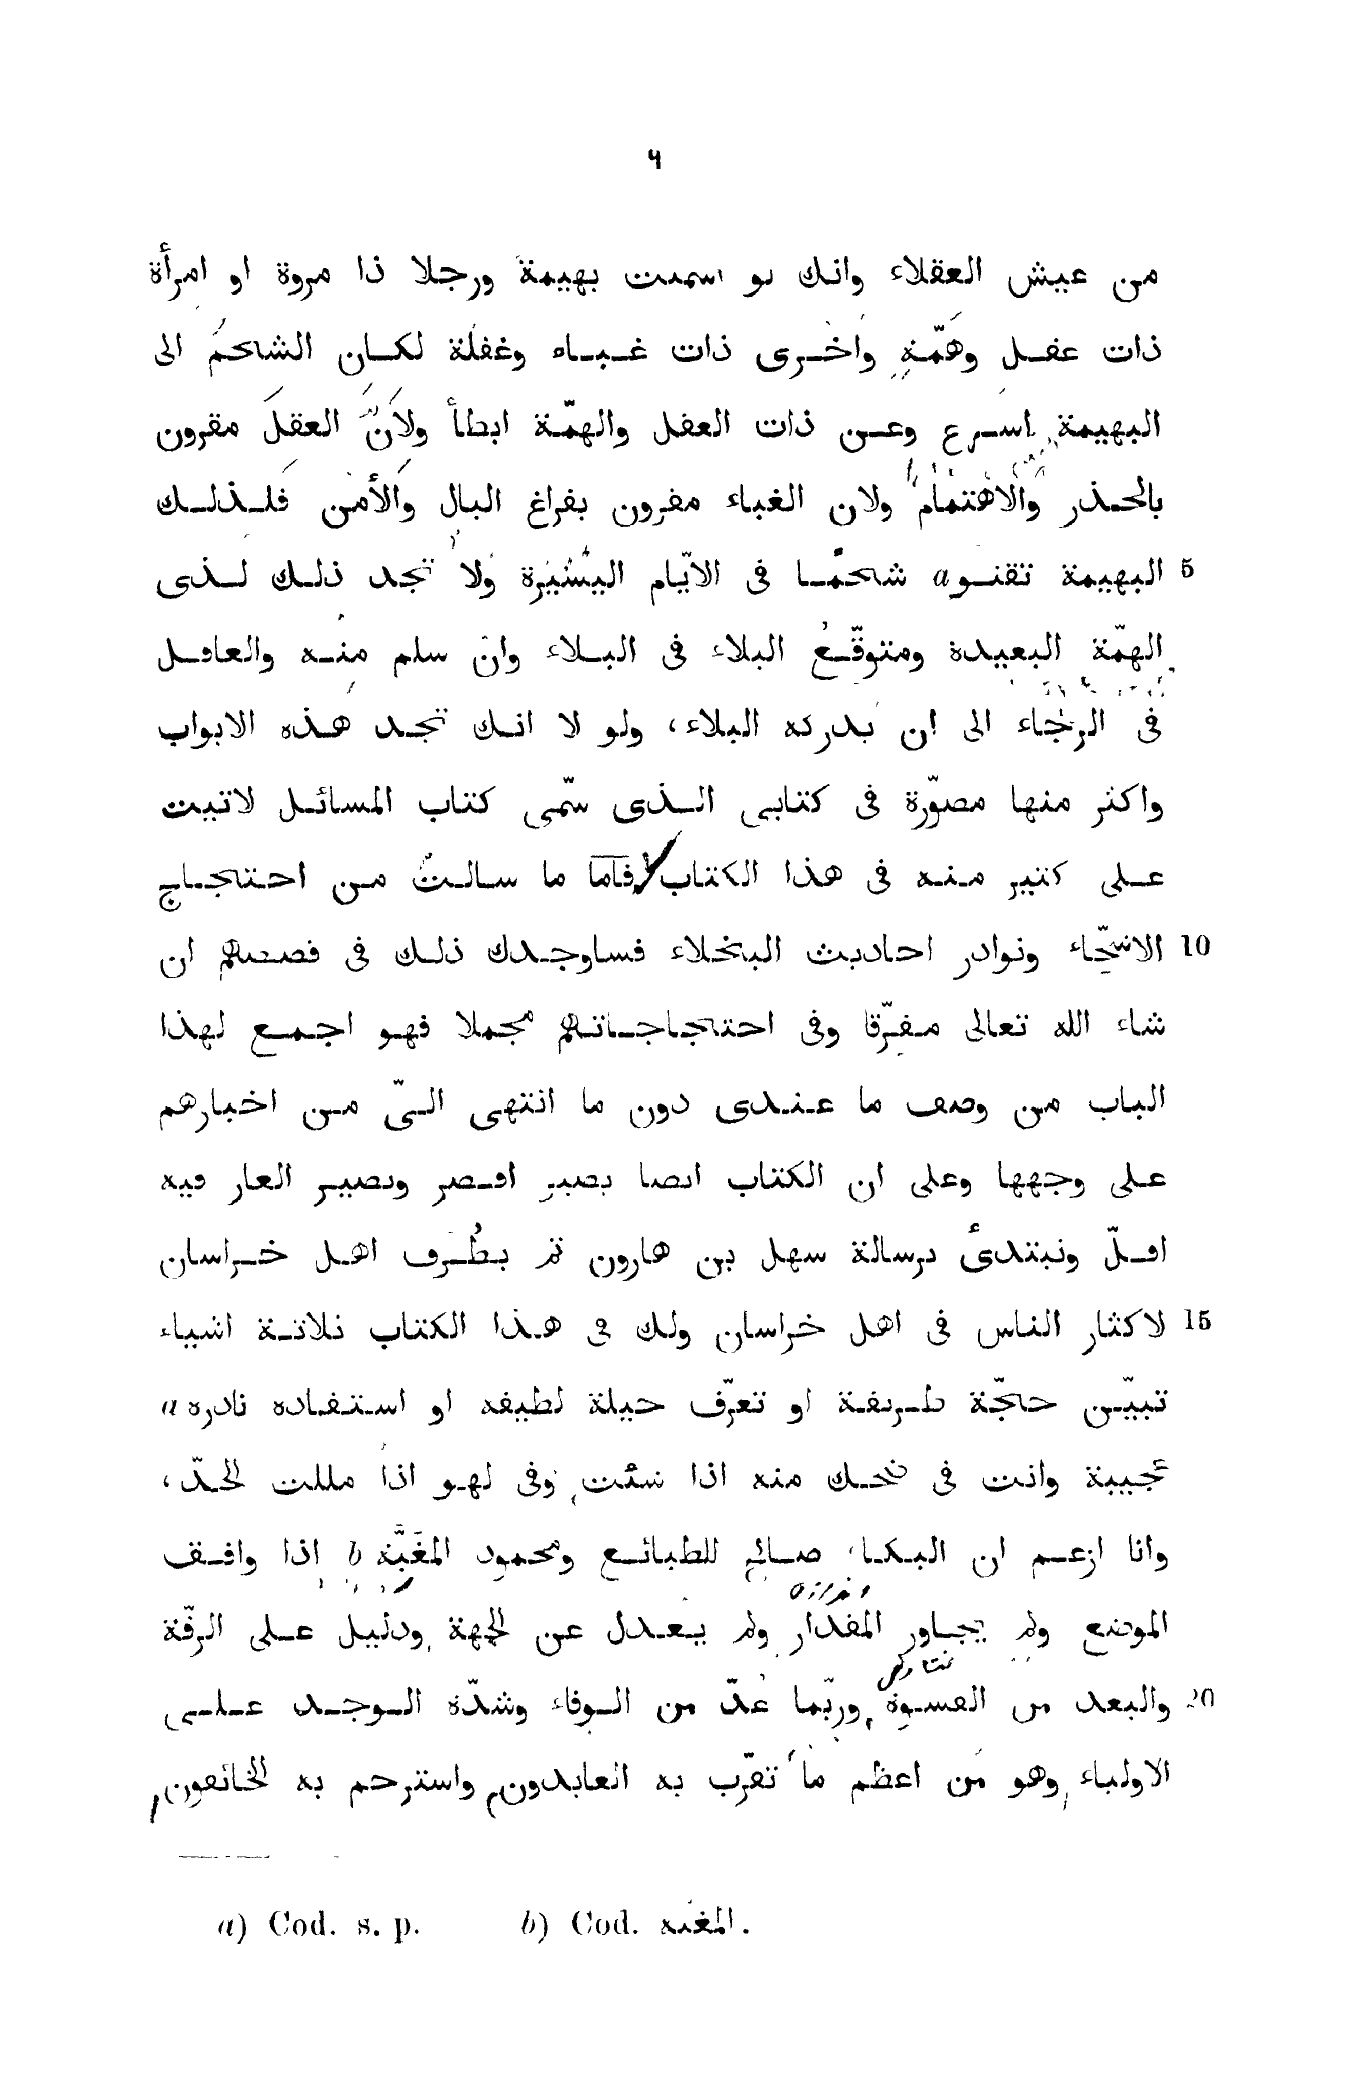 ٦
من عيش العقلاء وانك لو اسمنت بهيمة ورجلا ذا مروة او امرأة
ذات عقل وهمّة واخرى ذات غباء وغفلة لكان الشحمُ الى
البهيمة اسرع وعن ذات العقل والهمّة ابطأ ولأنّ العقلَ مقرون
بالحذر والاهتمام ولان الغباء مقرون بفراغ البال والأمن فلذلك
5 البهيمة تقنو a شحمًا فى الايّام اليسيرة ولا تجد ذلك لذى
الهمّة البعيدة ومتوقّعُ البلاء فى البلاء وان سلم منه والعاقل
فى الرجاء الى ان يدركه البلاء، ولو لا انك تجد هذه الابواب
واكثر منها مصوّرة فى كتابى الذى سمّى كتاب المسائل لاتيت
على كثير منه فى هذا الكتاب فامّا ما سالتَ من احتجاج
10 الاشحّاء ونوادر احاديث البخلاء فساوجدك ذلك فى قصصهم ان
شاء الله تعالى مفرّقا وفى احتجاجاتهم مجملا فهو اجمع لهذا
الباب من وصف ما عندى دون ما انتهى الىّ من اخبارهم
على وجهها وعلى ان الكتاب ايضا يصير اقصر ويصير العار فيه
اقلّ ونبتدئ برسالة سهل بن هارون ثم بطُرف اهل خراسان
15 لاكثار الناس فى اهل خراسان ولك فى هذا الكتاب ثلاثة اشياء
تبيّن حجّة طريفة او تعرّف حيلة لطيفة او استفادة نادرة a
عجيبة وانت فى ضحك منه اذا شئت وفى لهو اذا مللت الجدّ،
وانا ازعم ان البكاء صالح للطبائع ومحمود المغبّة b اذا وافق
الموضع ولم يجاور المقدار ولم يعدل عن الجهة ودليل على الرقّة
20 والبعد من القسوة وربّما عُدّ من الوفاء وشدّة الوجد على
الاولياء وهو من اعظم ما تقرّب به العابدون واسترحم به الخائفون
a) Cod. s. p. b) Cod. المغبه.